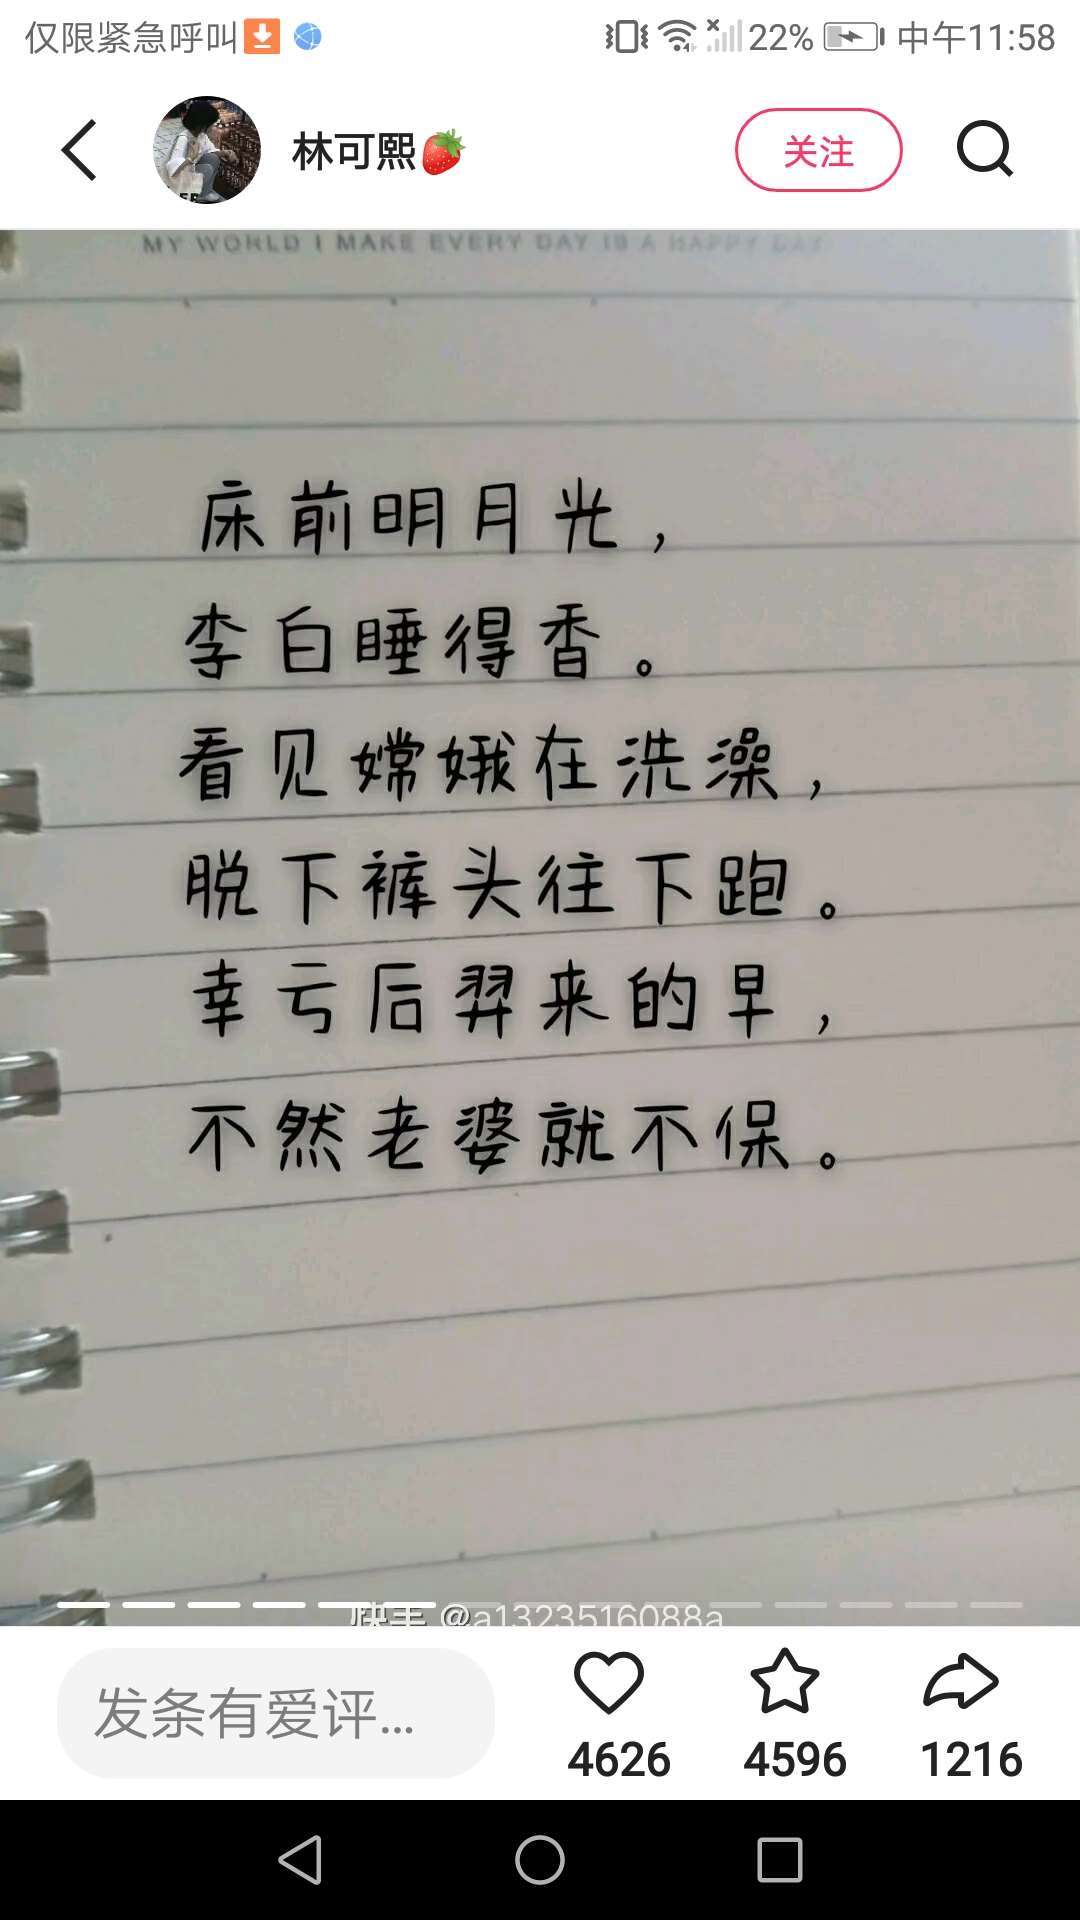 仅限紧急呼叫 22% 中午11:58
林可熙 关注
MY WORLD I MAKE EVERY DAY IS A HAPPY DAY
床前明月光，
李白睡得香。
看见嫦娥在洗澡，
脱下裤头往下跑。
幸亏后羿来的早，
不然老婆就不保。
快手 @a1323516088a
发条有爱评...
4626 4596 1216